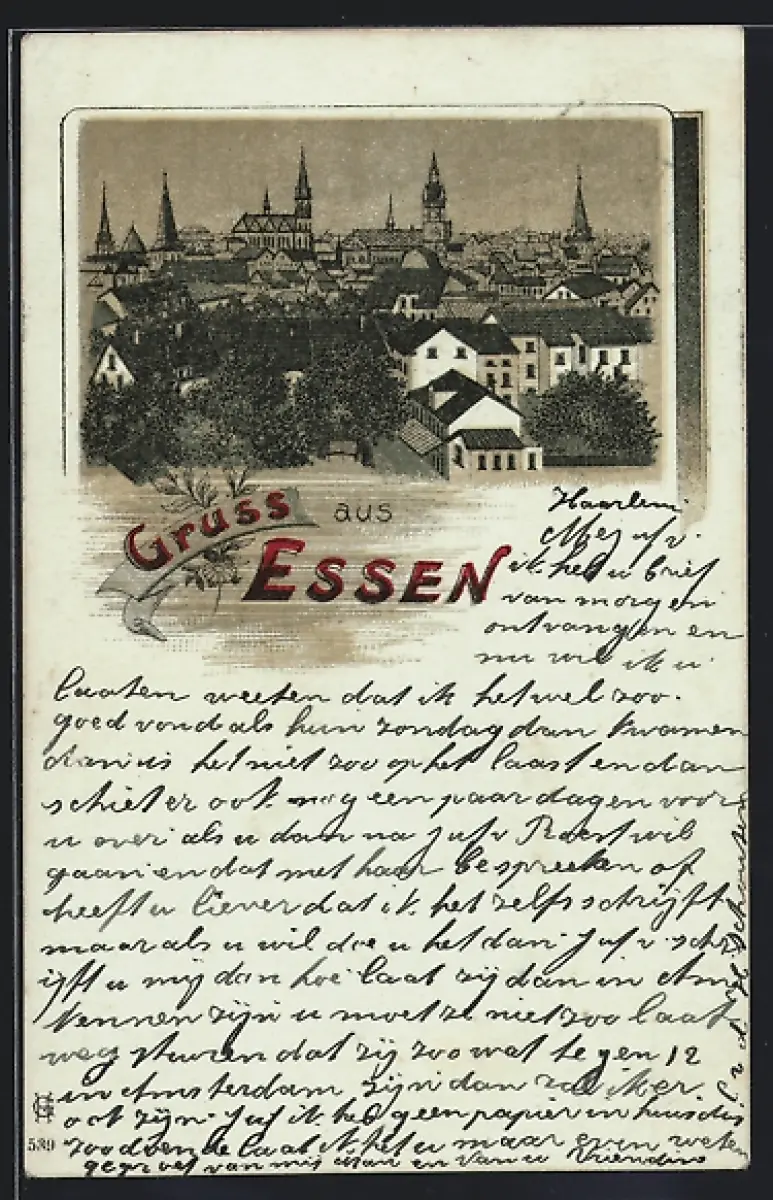 Gruss aus
ESSEN
Haarlem
Mejufv.
ik heb u brief
van morgen
ontvangen en
nu wil ik u
laaten weeten dat ik het wel zoo
goed vond als hun zondag dan kwamen
dan is het niet zoo op het laast en dan
schiet er ook nog een paar dagen voor
u over als u dan na Jufv wil
gaan en dat met haar bespreeken of
heeft u liever dat ik het zelfs schrijft
maar als u wil doe u het dan Jufv schr
ijft u mij dan hoe laat zij dan in Am
kennen zijn u moet ze niet zoo laat
weg sturen dat zij zoo wat tegen 12
in Amsterdam zijn dan zal ik er
ook zijn Juf ik heb geen papier in huis dis
zoodoende laat ik het u maar even weten
gegroet van mij dan en van u Vriendin
539